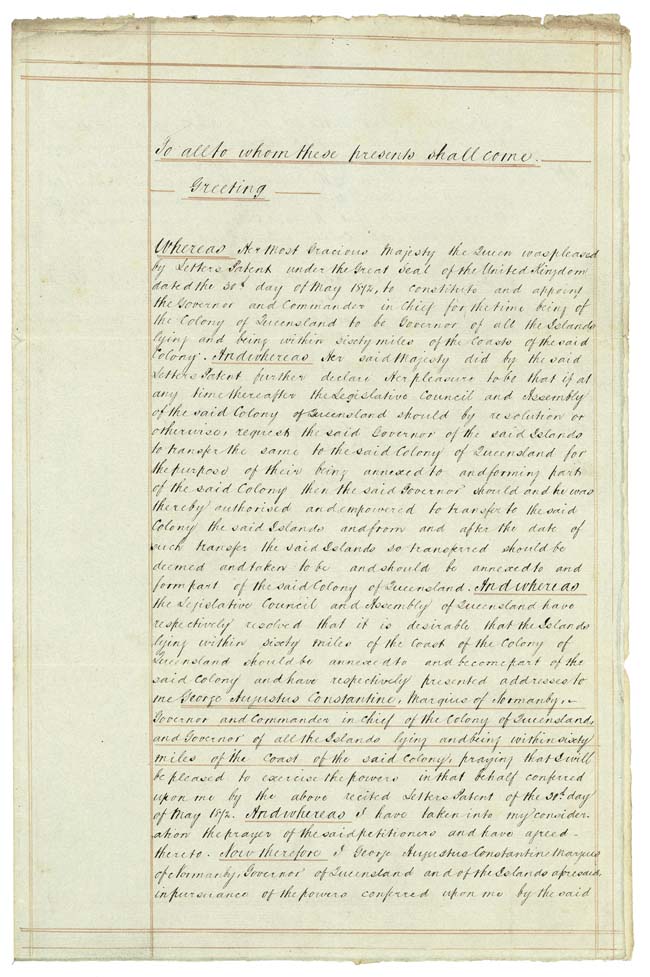 To all to whom these presents shall come.
Greeting
Whereas Her Most Gracious Majesty the Queen was pleased
by Letters Patent under the Great Seal of the United Kingdom
dated the 30th day of May 1872, to constitute and appoint
the Governor and Commander in Chief for the time being of
the Colony of Queensland to be Governor of all the Islands
lying and being within sixty miles of the Coasts of the said
Colony. And whereas Her said Majesty did by the said
Letters Patent further declare Her pleasure to be that if at
any time thereafter the Legislative Council and Assembly
of the said Colony of Queensland should by resolution or
otherwise, request the said Governor of the said Islands
to transfer the same to the said Colony of Queensland for
the purpose of their being annexed to and forming part
of the said Colony then the said Governor should and he was
thereby authorised and empowered to transfer to the said
Colony the said Islands and from and after the date of
such transfer the said Islands so transferred should be
deemed and taken to be and should be annexed to and
form part of the said Colony of Queensland. And whereas
the Legislative Council and Assembly of Queensland have
respectively resolved that it is desirable that the Islands
lying within sixty miles of the Coast of the Colony of
Queensland should be annexed to and become part of the
said Colony and have respectively presented addresses to
me George Augustus Constantine, Marquis of Normanby,
Governor and Commander in Chief of the Colony of Queensland,
and Governor of all the Islands lying and being within sixty
miles of the Coast of the said Colony, praying that I will
be pleased to exercise the powers in that behalf conferred
upon me by the above recited Letters Patent of the 30th day
of May 1872. And whereas I have taken into my consider-
ation the prayer of the said petitioners and have agreed -
thereto. Now therefore I George Augustus Constantine Marquis
of Normanby, Governor of Queensland and of the Islands aforesaid,
in pursuance of the powers conferred upon me by the said